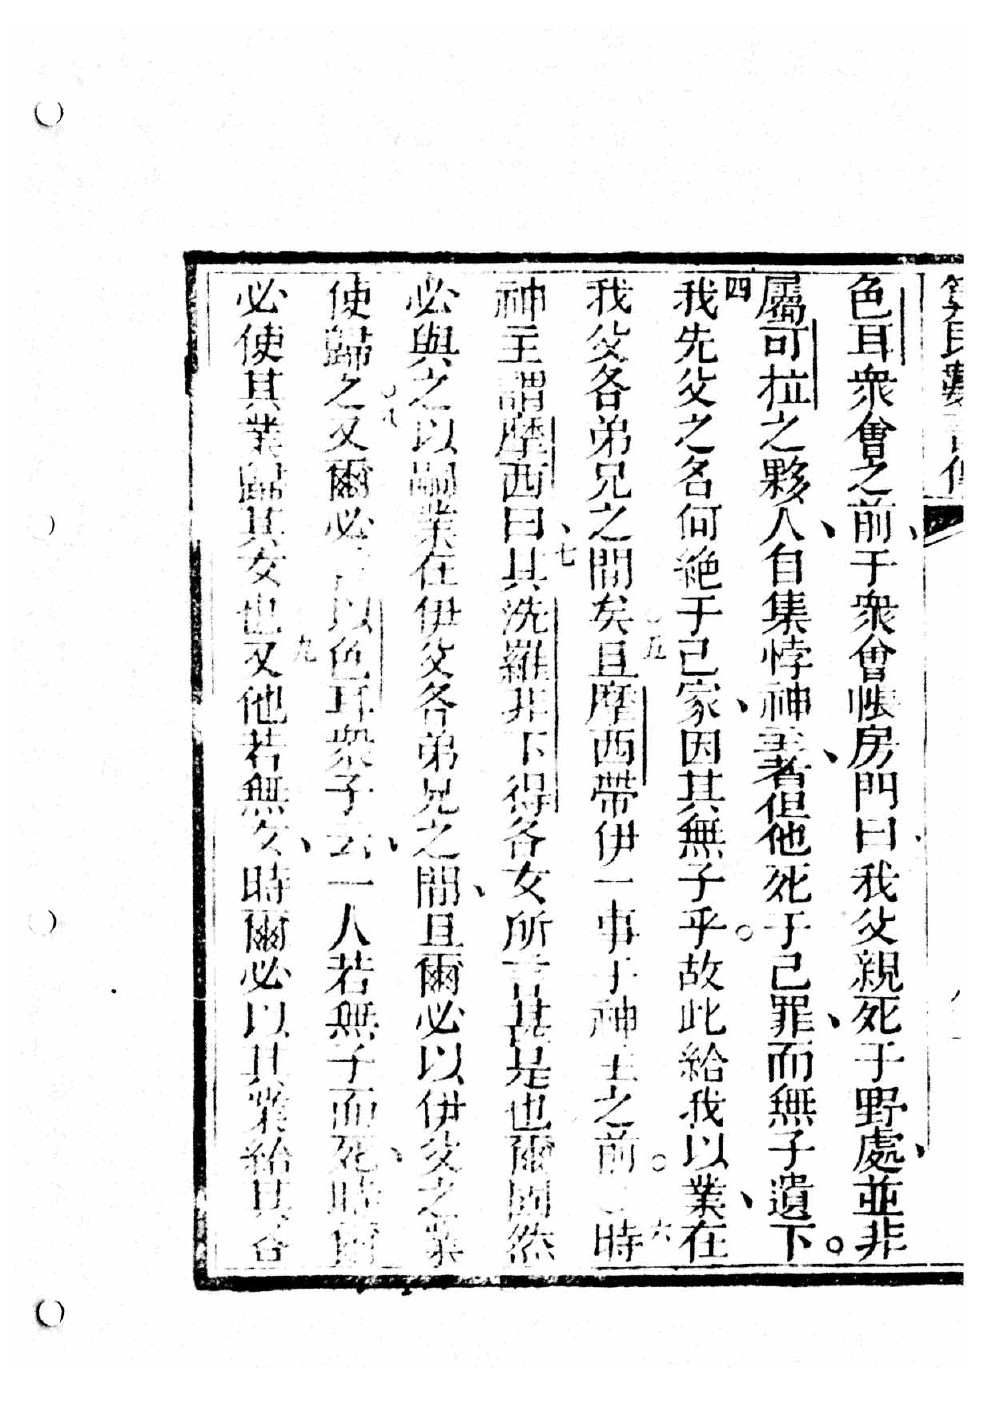 色耳衆會之前、于衆會帳房門曰、我父親死于野處、並非
屬可拉之夥人、自集悖神主者、但他死于己罪、而無子遺下。
四我先父之名何絶于己家、因其無子乎。故此給我以業、在
我父各弟兄之間矣。五且摩西帶伊一事于神主之前。六時
神主謂摩西曰、七其洗羅非下得各女所言甚是也爾固然
必與之以嗣業在伊父各弟兄之間、且爾必以伊父之業
使歸之。八又爾必以色耳衆子云、一人若無子而死、時爾
必使其業歸其女也九又他若無女、時爾必以其業給其各